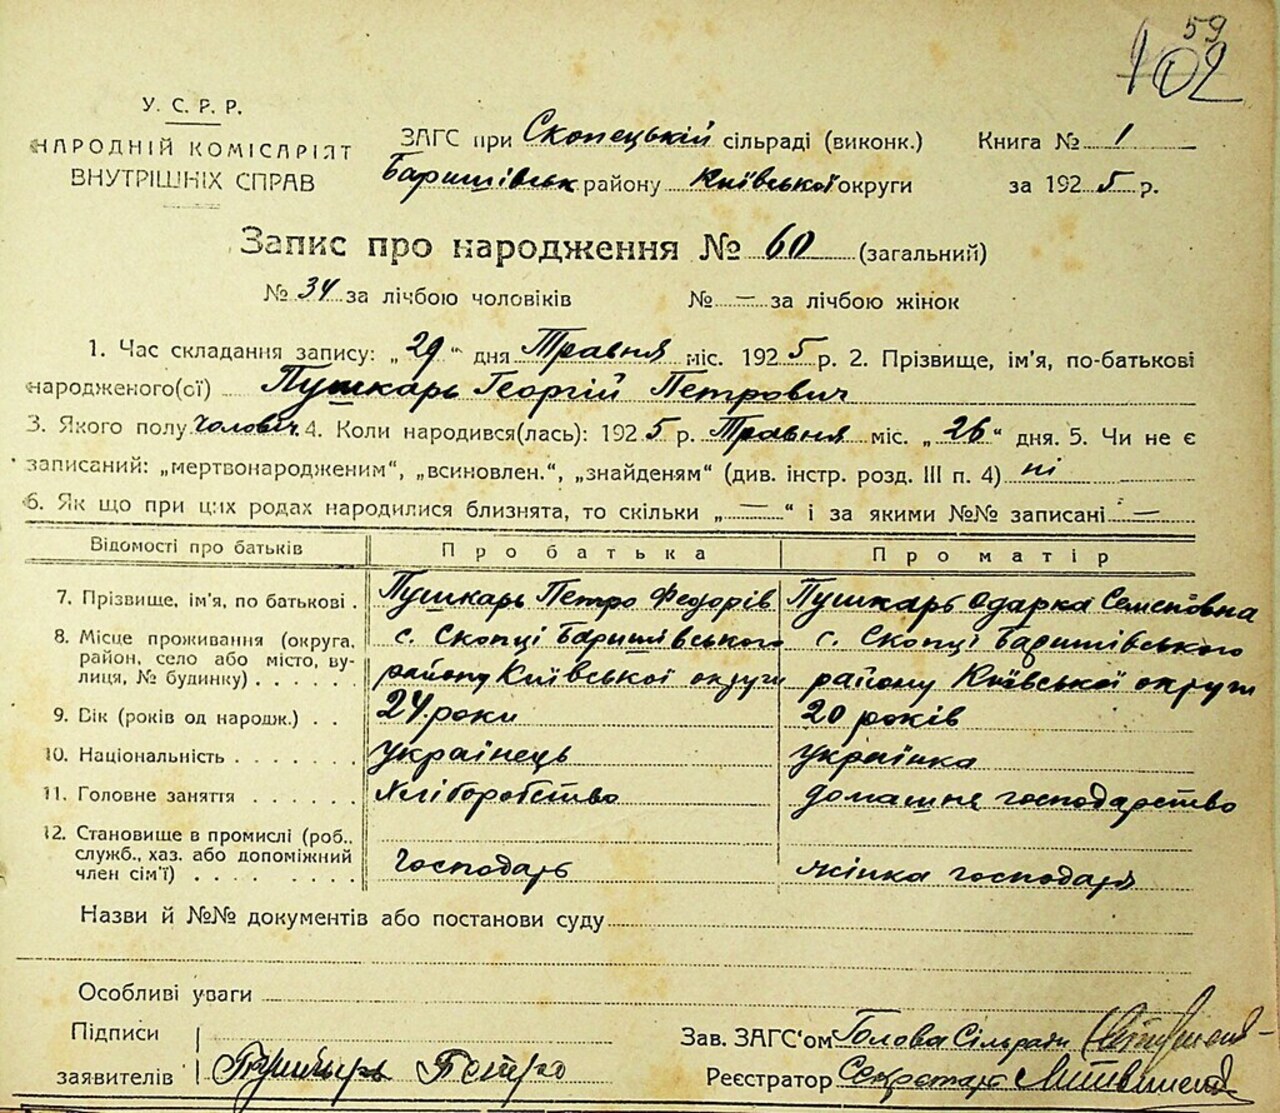 59
102
У. С. Р. Р.
НАРОДНІЙ КОМІСАРІЯТ
ВНУТРІШНІХ СПРАВ
ЗАГС при Скопецькій сільраді (виконк.) Книга № 1
Баришівськ району Київської округи за 1925 р.
Запис про народження № 60 (загальний)
№ 34 за лічбою чоловіків № — за лічбою жінок
1. Час складання запису: „29“ дня Травня міс. 1925 р. 2. Прізвище, ім'я, по-батькові
народженого(ої) Пушкарь Георгій Петрович
3. Якого полу чоловіч. 4. Коли народився(лась): 1925 р. Травня міс. „26“ дня. 5. Чи не є
записаний: „мертвонародженим“, „всиновлен.“, „знайденям“ (див. інстр. розд. III п. 4) ні
6. Як що при цих родах народилися близнята, то скільки „—“ і за якими №№ записані —
Відомості про батьків Про батька Про матір
7. Прізвище, ім'я, по батькові . Пушкарь Петро Федорів Пушкарь Одарка Семеновна
8. Місце проживання (округа, с. Скопці Баришівського с. Скопці Баришівського
район, село або місто, ву-
лиця, № будинку) . . . . . району Київської округи району Київської округи
9. Вік (років од народж.) . . 24 роки 20 років
10. Національність . . . . . . . українець українка
11. Головне заняття . . . . . . хліборобство домашнє господарство
12. Становище в промислі (роб.,
служб., хаз. або допоміжний
член сім'ї) . . . . . . . . господарь жінка господаря
Назви й №№ документів або постанови суду
Особливі уваги
Підписи Зав. ЗАГС'ом Голова Сільради
заявителів Петро Реєстратор Секретарь